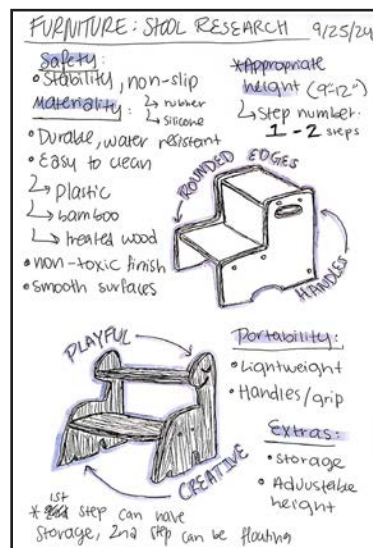 FURNITURE: STOOL RESEARCH 9/25/24
Safety:
• Stability, non-slip
↳ rubber
↳ silicone
Materiality:
• Durable, water resistant
• Easy to clean
↳ plastic
↳ bamboo
↳ treated wood
• non-toxic finish
• smooth surfaces
*Appropriate
height (9"-12")
↳ Step number:
1-2 steps
ROUNDED EDGES
HANDLES
PLAYFUL
CREATIVE
Portability:
• Lightweight
• Handles/grip
Extras:
• Storage
• Adjustable
height
* 1st step can have
storage, 2nd step can be floating